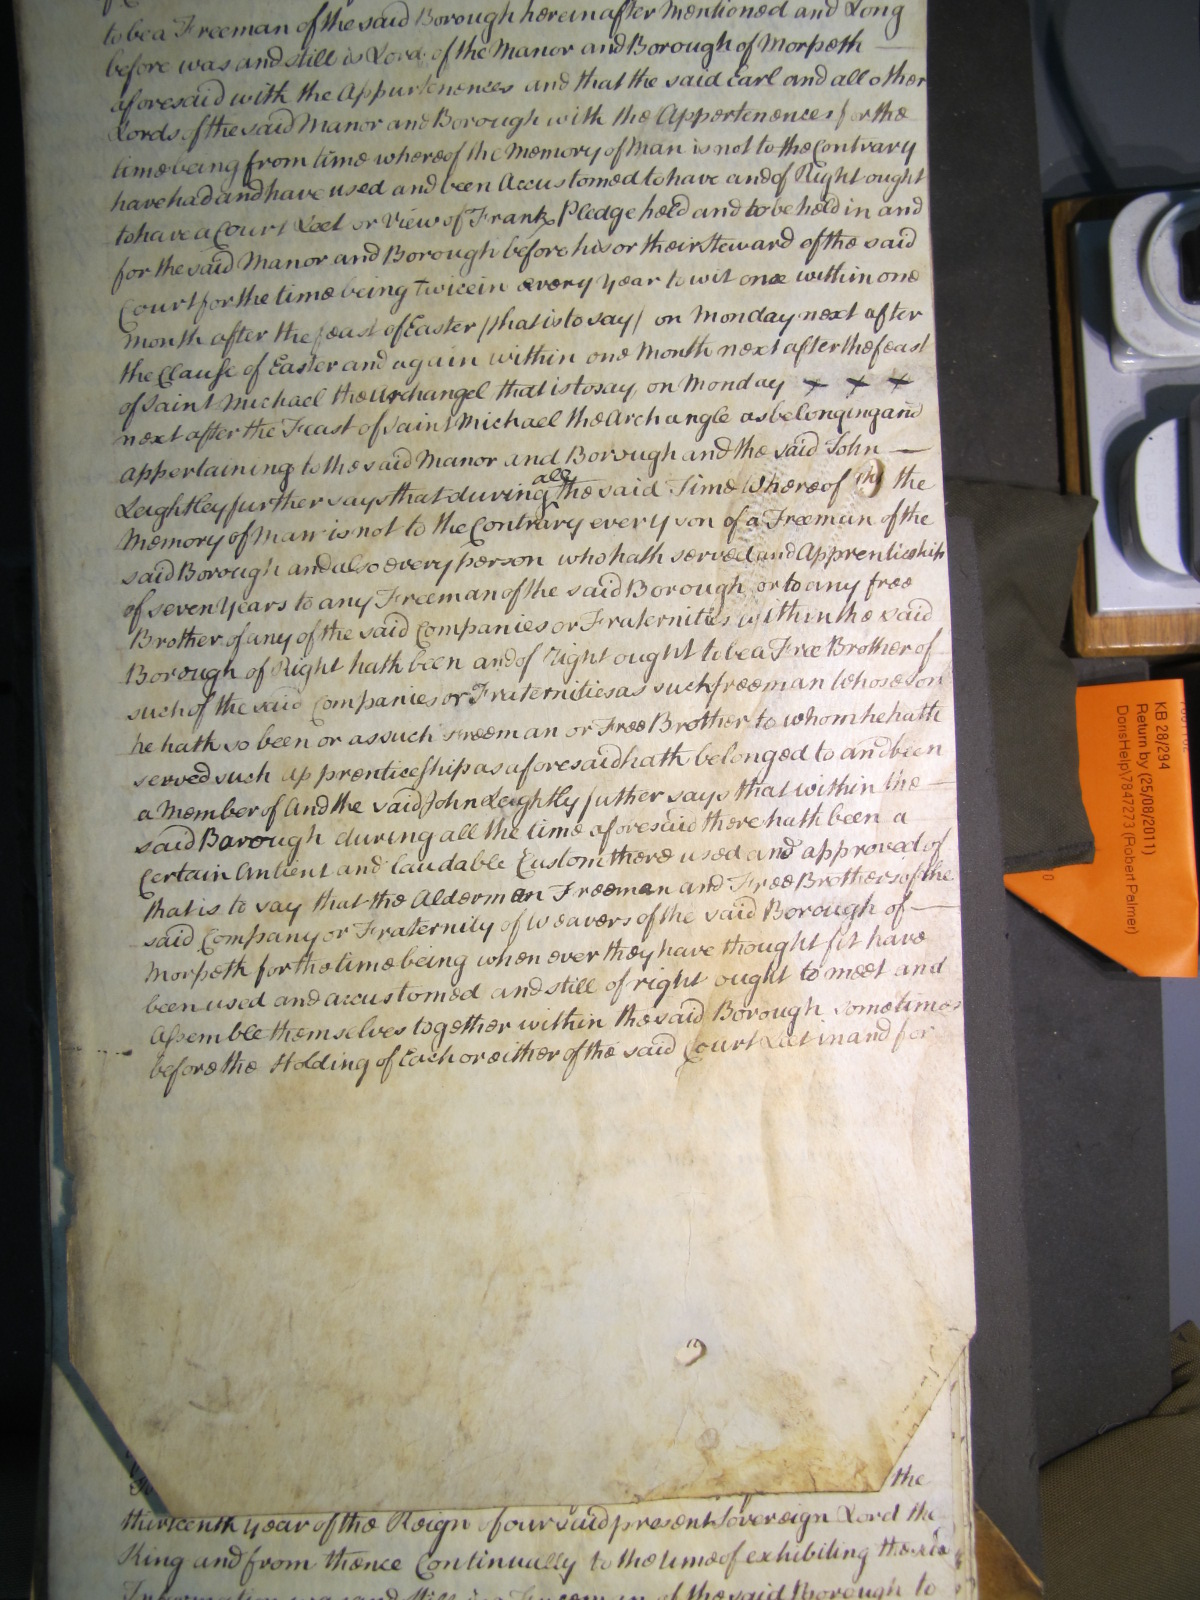 to be a Freeman of the said Borough herein after Mentioned and Long
before was and still is Lord of the Manor and Borough of Morpeth
aforesaid with the Appurtenences and that the said Earl and all other
Lords of the said Manor and Borough with the Appertenences for the
time being from time whereof the Memory of Man is not to the Contrary
have had and have used and been Accustomed to have and of Right ought
to have a Court Leet or View of Frank Pledge held and to be held in and
for the said Manor and Borough before his or their steward of the said
Court for the time being Twice in every Year to wit once within one
month after the feast of Easter (that is to say) on Monday next after
the Clause of Easter and again within one Month next after the feast
of Saint Michael the Archangel that is to say on Monday x x x
next after the Feast of Saint Michael the Archangle as belonging and
appertaining to the said Manor and Borough and the said John
Leightley further says that during all the said Time Whereof the
Memory of Man is not to the Contrary every son of a Freeman of the
said Borough and also every person who hath served and Apprenticeship
of seven Years to any Freeman of the said Borough or to any free
Brother of any of the said Companies or Fraternities within the said
Borough of Right hath been and of right ought to be a Free Brother of
such of the said Companies or Fraternities as such freeman Whose son
he hath so been or as such Freeman or Free Brother to whom he hath
served such apprenticeship as aforesaid hath belonged to and been
a Member of And the said John Leightly futher says that within the
said Borough during all the time aforesaid there hath been a
Certain Antient and laudable Custom there used and approved of
that is to say that the Alderman Freeman and Free Brothers of the
said Company or Fraternity of Weavers of the said Borough of
Morpeth for the time being when ever they have thought fit have
been used and accustomed and still of right ought to meet and
Assemble themselves together within the said Borough sometimes
before the Holding of Each or either of the said Court Leet in and for
the
thirteenth year of the Reign of our said present Sovereign Lord the
King and from thence Continually to the time of exhibiting the
of the said Borough to
KB 28/294
Return by (25/08/2011)
DorisHelp\7847273 (Robert Palmer)